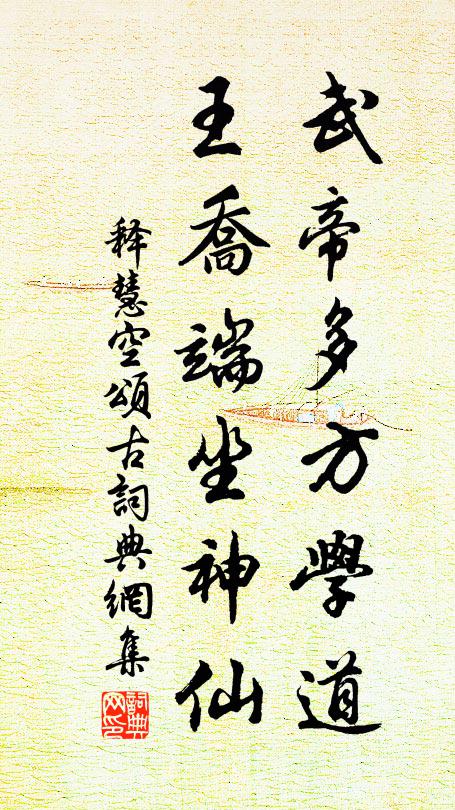 武帝多方學道
王喬端坐神仙
释慧空頌古詞典網集
詞典
网印